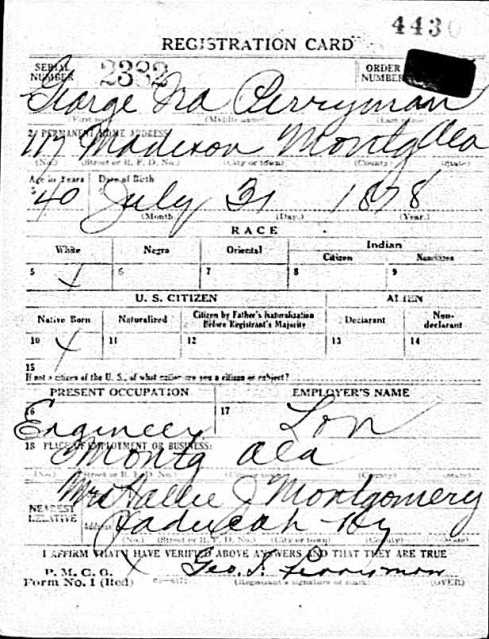 4430
REGISTRATION CARD
SERIAL NUMBER 2332 ORDER NUMBER
George Ira Perryman
(First name) (Middle name) (Last name)
2 PERMANENT HOME ADDRESS:
Madison Montg Ala
(No.) (Street or R. F. D. No.) (City or town) (County) (State)
Age in Years Date of Birth
3 40 July 31 1878
(Month.) (Day.) (Year.)
RACE
White Negro Oriental Indian
Citizen Noncitizen
5 X 6 7 8 9
U. S. CITIZEN ALIEN
Native Born Naturalized Citizen by Father's Naturalization Before Registrant's Majority Declarant Non-declarant
10 X 11 12 13 14
15
If not a citizen of the U. S., of what nation are you a citizen or subject?
PRESENT OCCUPATION EMPLOYER'S NAME
16 Engineer 17 L o n
18 PLACE OF EMPLOYMENT OR BUSINESS:
Montg Ala
(No.) (Street or R. F. D. No.) (City or town) (County) (State)
Mrs Hallie J Montgomery
NEAREST RELATIVE
Address Paducah Ky
(No.) (Street or R. F. D. No.) (City or town) (County) (State)
I AFFIRM THAT I HAVE VERIFIED ABOVE ANSWERS AND THAT THEY ARE TRUE
P. M. G. O.
Form No. 1 (Red) Geo. I. Perryman
(Registrant's signature or mark) (OVER)